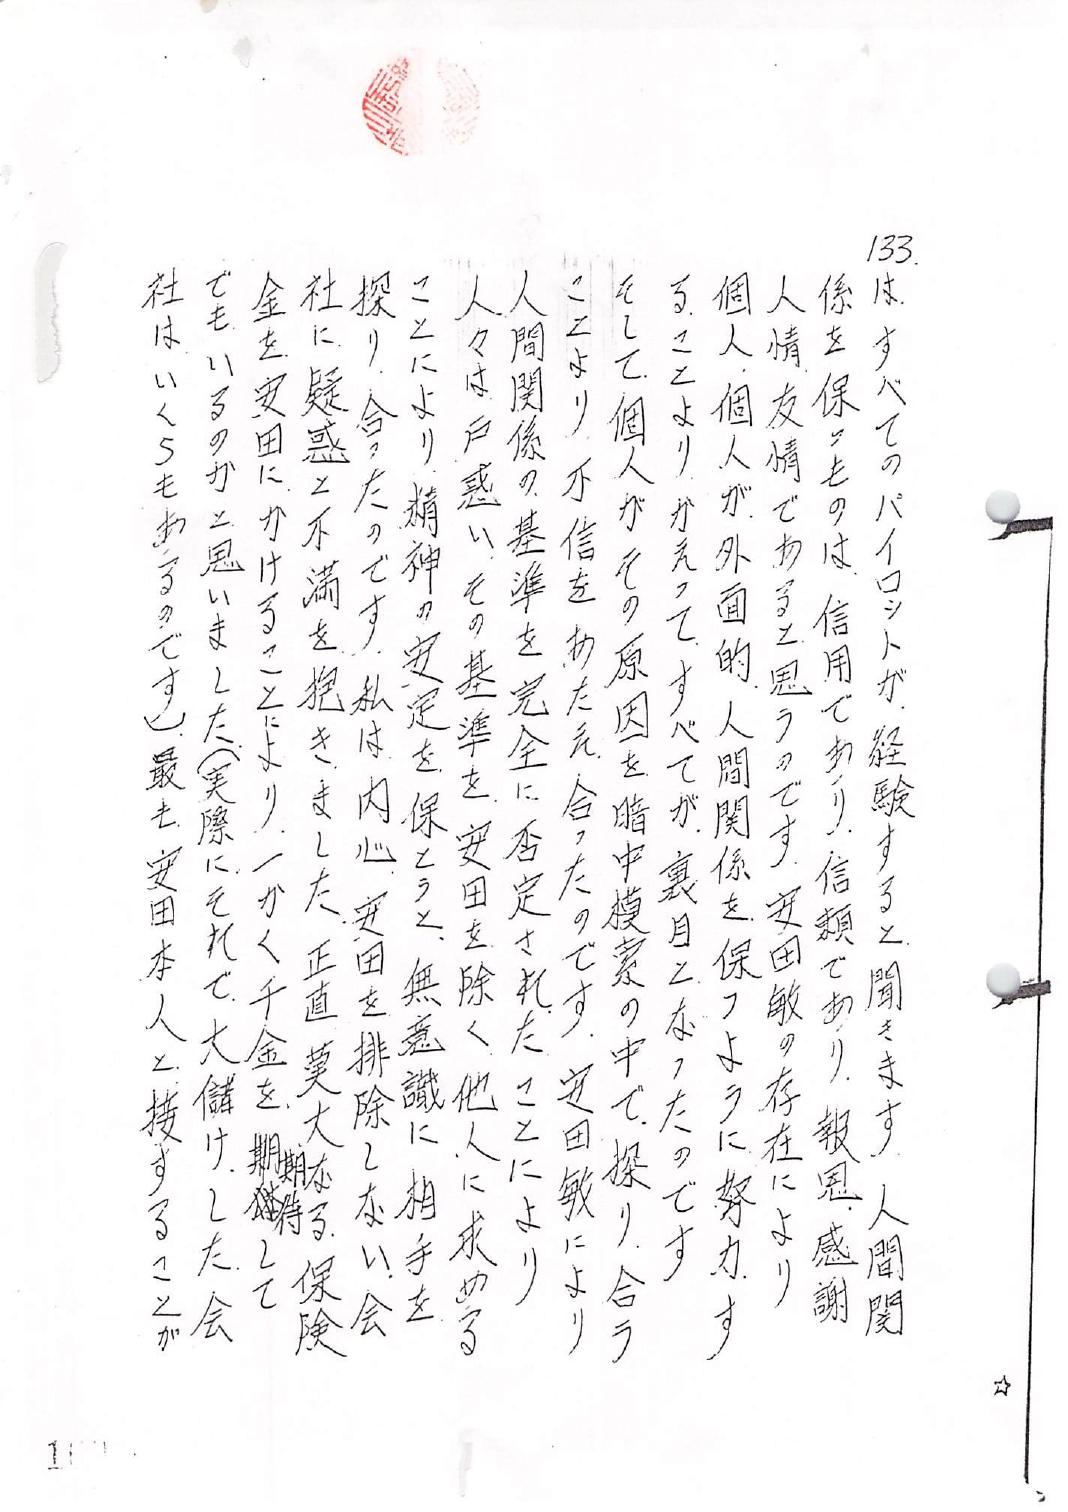 133.
は、すべてのパイロットが、経験すると、聞きます。人間関
係を保つものは、信用であり、信頼であり、報恩、感謝
人情、友情であると思うのです。安田敏の存在により
個人、個人が、外面的、人間関係を、保つように、努力、す
ることより、かえって、すべてが、裏目となったのです
そして、個人がその原因を暗中模索の中で、探り、合う
ことより、不信をあたえ合ったのです。安田敏により
人間関係の基準を完全に否定されたことにより
人々は戸惑い、その基準を、安田を除く、他人に求める
ことにより、精神の安定を、保とうと、無意識に相手を
探り、合ったのです。私は内心、安田を排除しない、会
社に、疑惑と不満を抱きました。正直莫大なる保険
金を、安田に、かけることにより、一かく千金を、期待して
でも、いるのかと思いました（実際にそれで、大儲け、した、会
社は、いくらもあるのです）、最も、安田本人と、接することが
☆